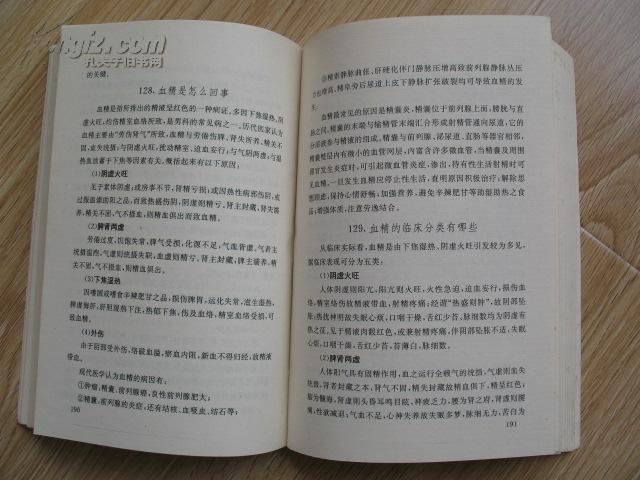 kongfz.com
孔夫子旧书网
的关键。
128.血精是怎么回事
血精是指所指出的精液呈红色的一种病证，多因下焦湿热，阴
虚火旺，灼伤精室血络所致，是男科的常见病之一。历代医家认为
血精主要由“劳伤肾气”所致，血精与劳倦伤脾、肾失所养，精关不
固，血失统摄；与阴虚火旺，扰动精室，迫血妄行；与气阴两虚；与湿
热血浊蓄于下焦等因素有关。概括起来有以下原因：
(1)阴虚火旺
见于素体阴虚；或房事不节，肾精亏损；或因热性病邪伤阴；或
过服温燥助阳之品，而致热盛伤阴，阴虚则精亏。肾主封藏，肾失濡
养，精关不固，气不摄血，则精血俱出而致血精。
(2)脾肾两虚
劳倦过度，饥饱失常，脾气受损，化源不足，气血皆虚。气者主
统摄温煦，气虚则统摄失职，血虚则精亏。肾主封藏，脾主濡养，精
关不固，气不摄血，则精血俱出。
(3)下焦湿热
因嗜酒或嗜食辛辣肥甘之品，损伤脾胃，运化失常，滋生湿热，
脾虚侮肝，肝胆湿热下注，热郁下焦，伤及血络，精室血络受损，可
致血精。
(4)外伤
由于阴部受外伤，络破血溢，瘀血内阻，新血不得归经，故精液
带血。
现代医学认为血精的病因有：
①肿瘤，精囊、前列腺癌，良性前列腺肥大；
②精囊、前列腺的炎症，还有结核、血吸虫、结石等；
190
③精索静脉曲张、肝硬化伴门静脉压增高致前列腺静脉丛压
力也增高，精阜旁后尿道上皮下静脉扩张破裂均可导致血精的发
生。
血精最常见的原因是精囊炎。精囊位于前列腺上面，膀胱与直
肠之间。精囊的末端与输精管末端汇合形成射精管通向尿道，它的
分泌液参与精液的组成。精囊与前列腺、泌尿道、直肠等器官相邻，
而精囊壁层内有微小的血管网层，内富含许多微血管，当精囊及周围
器官发生炎症反应时，可引起微血管炎症，渗出，待有性生活射精时可
见血精。一旦发生血精应停止性生活，查明原因积极治疗；解除思
想顾虑，保持心情舒畅；加强营养，避免辛辣肥甘等助湿助热之食
品；增强体质，注意劳逸结合。
129.血精的临床分类有哪些
从临床实际看，血精是由下焦湿热、阴虚火旺引发较为多见，
据临床表现可分为五类。
(1)阴虚火旺
人体阴虚则阳亢，阳亢则火旺，火性急迫，迫血妄行，损伤血
络，精室络伤故精液带血，射精疼痛；经谓“热盛则肿”，故阴部坠
胀；热扰神明故失眠心烦，口咽干燥，舌红少苔，脉细数均为阴虚有
热之征。见于精液内眼红色，或兼射精疼痛，伴阴部坠胀不适，失眠
心烦，口咽干燥，舌红少苔，苔薄白，脉细数。
(2)脾肾两虚
人体阳气具有固精作用，血之运行全赖气的统摄，气虚则血失
统摄，肾者封藏之本，肾气不固，精失封藏故精血俱下，精呈红色；
脑为髓海，肾虚则头昏耳鸣目眩，神疲乏力，腰为肾之府，肾虚则腰
痛，性欲减退；气血不足，心神失养故失眠多梦，脉细无力，舌白为
191